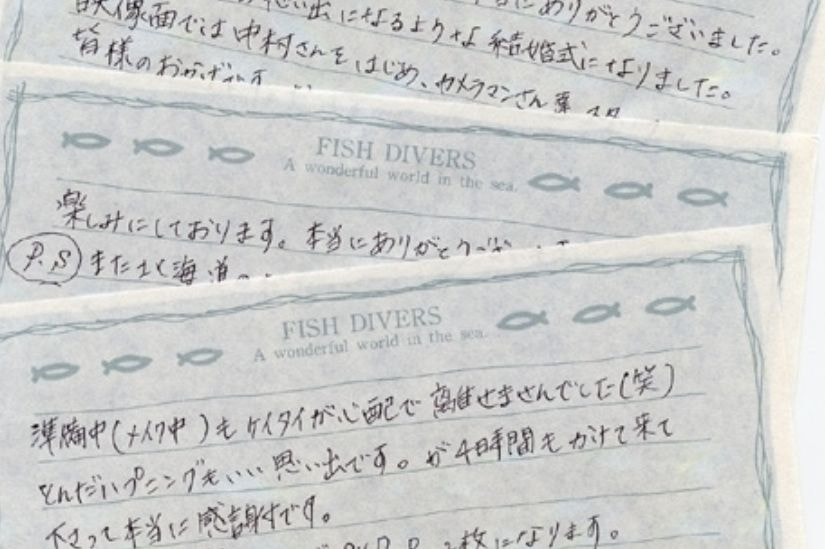 にありがとうございました。
思い出になるような結婚式になりました。
映像面では中村さんをはじめ、カメラマンさん
皆様のおかげです
FISH DIVERS
A wonderful world in the sea.
楽しみにしております。本当にありがとうござい
P.S また北海道
FISH DIVERS
A wonderful world in the sea.
準備中(メイク中)もケイタイが心配で離せませんでした(笑)
とんだハプニングもいい思い出です。が4時間もかけて来て
下さって本当に感謝です。
枚になります。